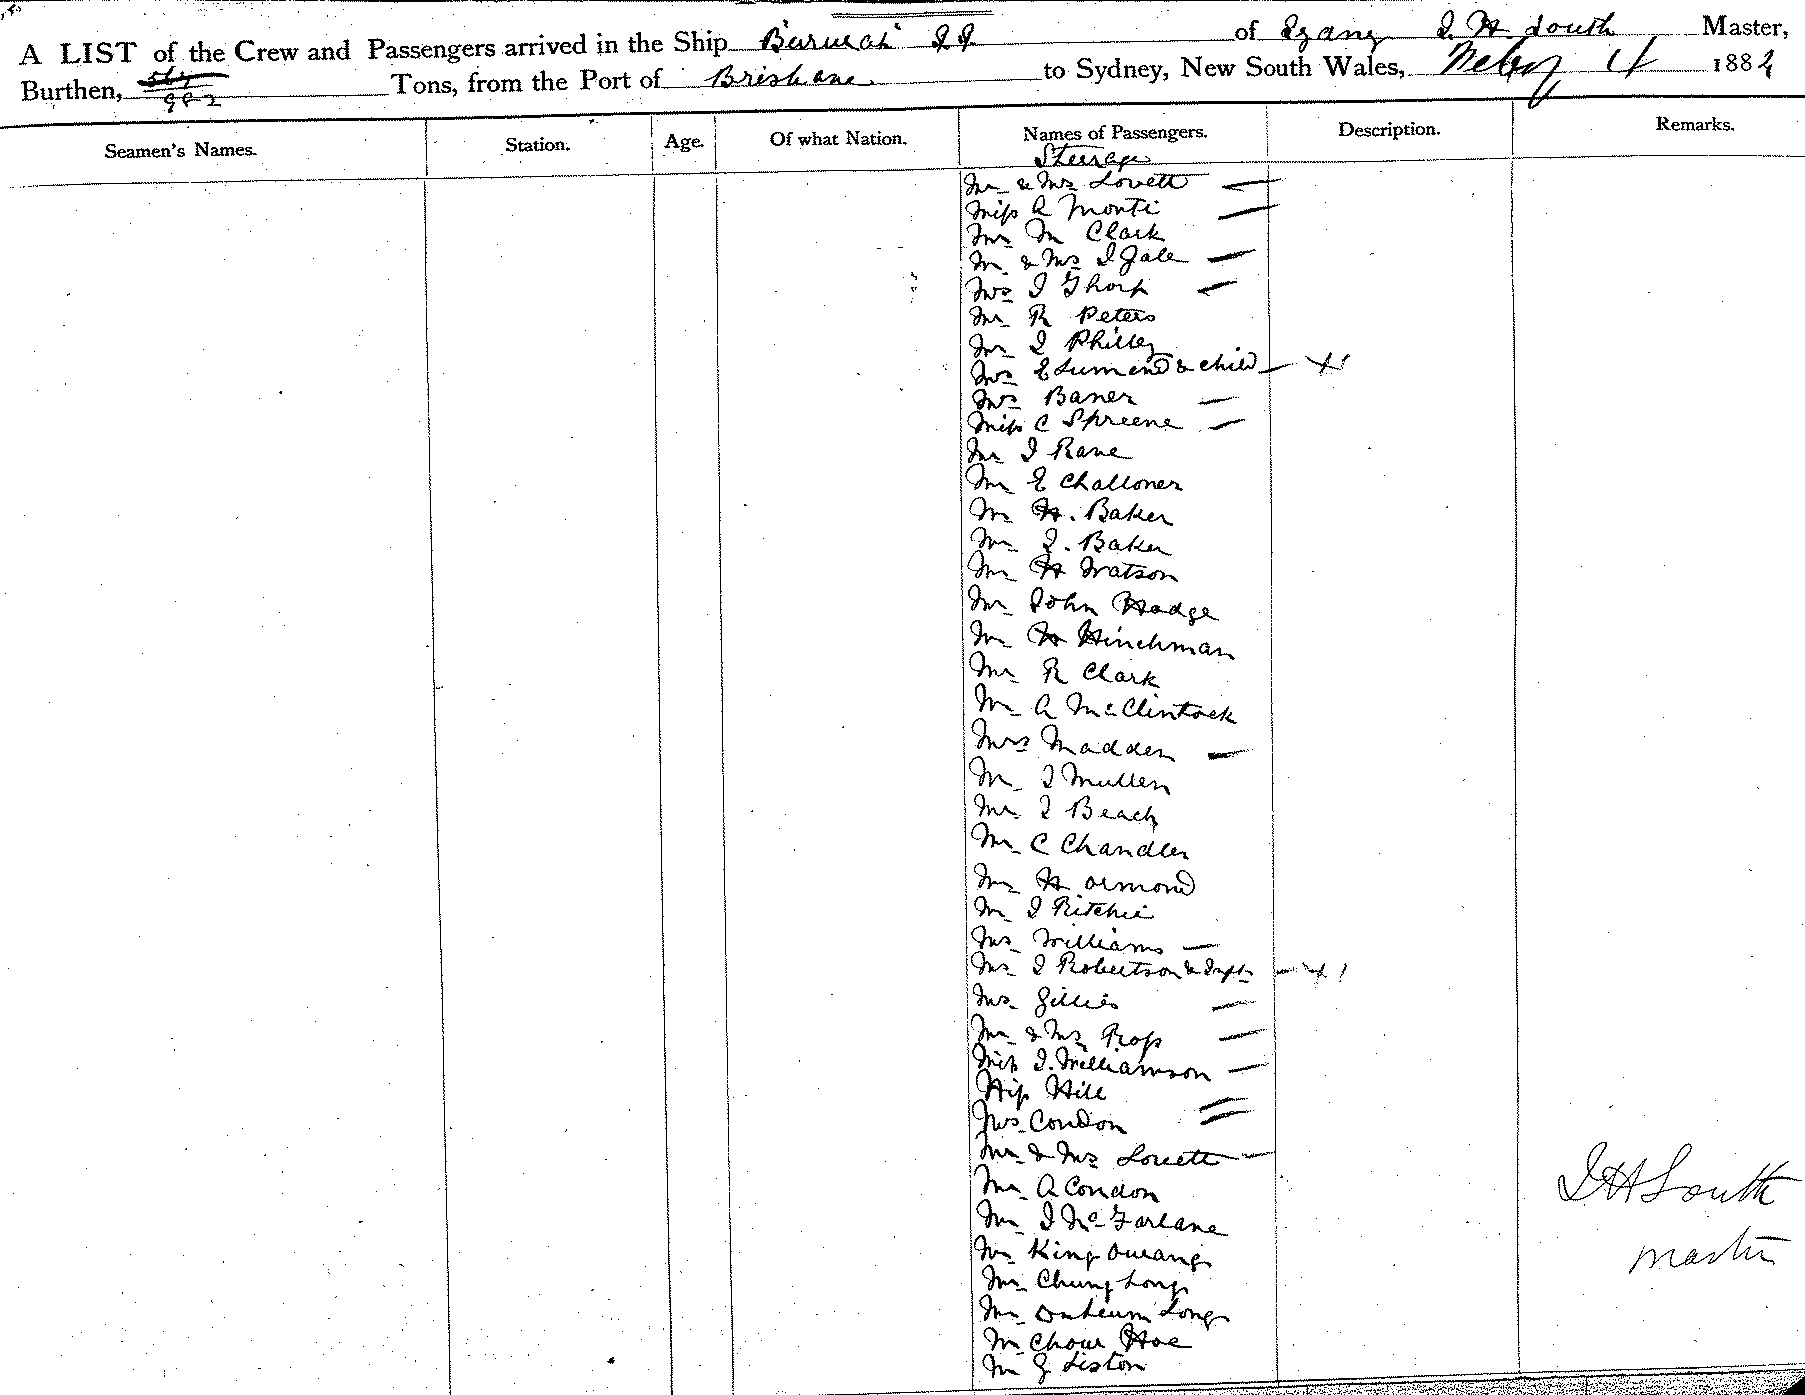 A LIST of the Crew and Passengers arrived in the Ship Burwah S.S. of Master,
Burthen, 982 Tons, from the Port of Brisbane to Sydney, New South Wales, 1882
Seamen's Names. Station. Age. Of what Nation. Names of Passengers. Description. Remarks.
Steerage
Mr & Mrs Lovett —
Miss A Monti —
Mr M Clark
Mr & Mrs J Gale —
Mrs J Thorp —
Mr R Peters
Mr J
Mrs & child — x 1
Mrs Baner —
Miss C Spreene —
Mr J Rane
Mr E Challoner
Mr H. Baker
Mr J. Baker
Mr H Watson
Mr John Hodge
Mr H Hinchman
Mr R Clark
Mr A McClintock
Mrs Madden —
Mr J Mullen
Mr J Beach
Mr C Chandler
Mr H Ormond
Mr J Ritchie
Mrs Williams —
Mrs J Robertson & Inft — x 1
Mrs Gillies —
Mr & Mrs Ross —
Miss J. Williamson —
Miss Hill —
Mrs Condon —
Mr & Mrs Lovett —
Mr A Condon
Mr J McFarlane
Mr King
Mr Chung Long
Mr Long
Mr Chow Hoe
Mr G Liston
J H South
Master